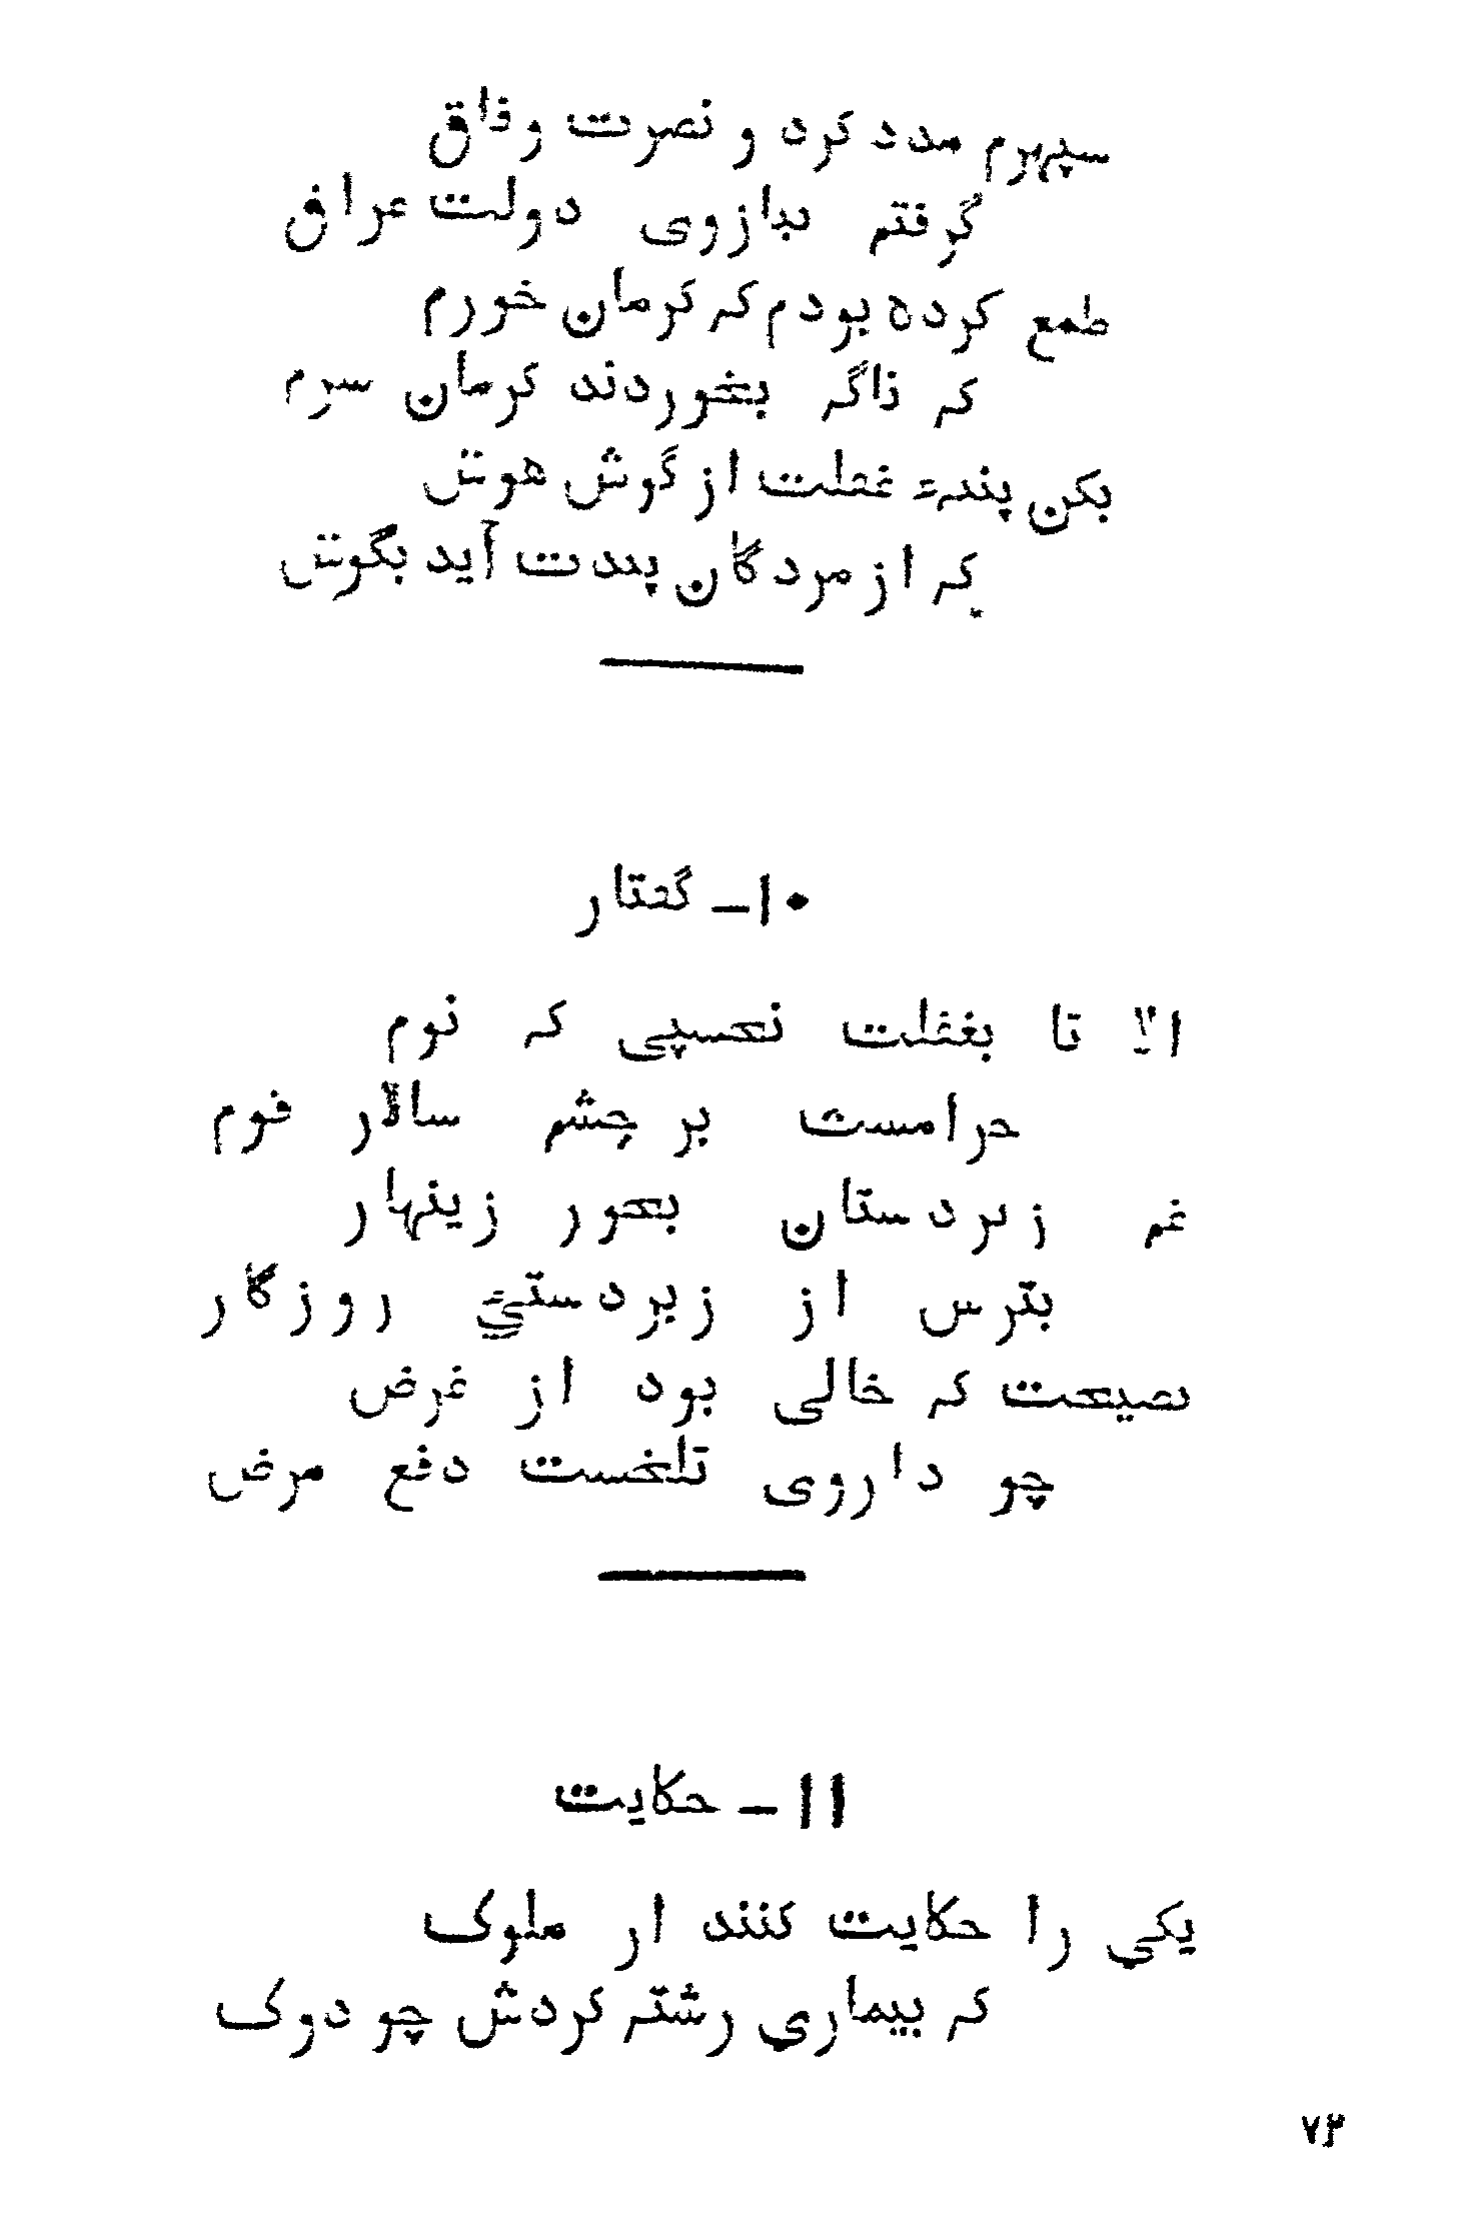 سپهرم مدد کرد و نصرت وفاق
گرفتم ببازوی دولت عراق
طمع کرده بودم که کرمان خورم
که ناگه بخوردند کرمان سرم
بکن پنبهٔ غفلت از گوش هوش
که از مردگان پندت آید بگوش
۱۰- گفتار
الا تا بغفلت نخسپی که نوم
حرامست بر چشم سالار قوم
غم زیردستان بخور زینهار
بترس از زبردستیٔ روزگار
نصیحت که خالی بود از غرض
چو داروی تلخست دفع مرض
۱۱- حکایت
یکی را حکایت کنند از ملوک
که بیماری رشته کردش چو دوک
۷۳